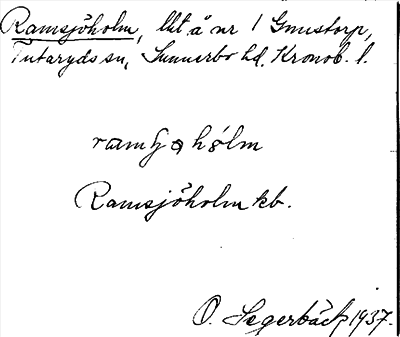 Ramsjöholm, lht å nr 1 Gnustorp,
Tutaryds sn, Sunnerbo hd, Kronob. l.
Ramsjöholm kb.
O. Segerbäck 1937.